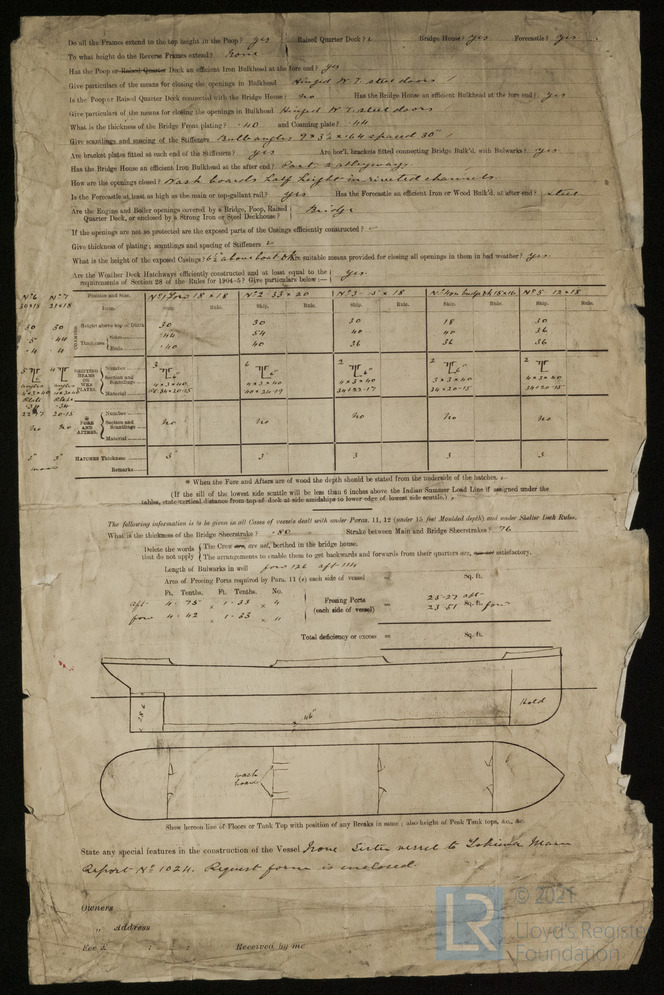 Do all the Frames extend to the top height in the Poop? yes Raised Quarter Deck? Bridge House? yes Forecastle? yes
To what height do the Reverse Frames extend? None
Has the Poop or Raised Quarter Deck an efficient Iron Bulkhead at the fore end? yes
Give particulars of the means for closing the openings in Bulkhead Hinged W.T. steel doors
Is the Poop or Raised Quarter Deck connected with the Bridge House? no Has the Bridge House an efficient Bulkhead at the fore end? yes
Give particulars of the means for closing the openings in Bulkhead Hinged W.T. steel doors
What is the thickness of the Bridge Front plating? .40 and Coaming plate? .44
Give scantlings and spacing of the Stiffeners Bulb angles 9 x 3½ x .64 spaced 30"
Are bracket plates fitted at each end of the Stiffeners? yes Are hor'l. brackets fitted connecting Bridge Bulk'd. with Bulwarks? yes
Has the Bridge House an efficient Iron Bulkhead at the after end?
How are the openings closed? Wash boards half height in riveted channels.
Is the Forecastle at least as high as the main or top-gallant rail? yes Has the Forecastle an efficient Iron or Wood Bulk'd. at after end? steel
Are the Engine and Boiler openings covered by a Bridge, Poop, Raised Bridge
Quarter Deck, or enclosed by a Strong Iron or Steel Deckhouse?
If the openings are not so protected are the exposed parts of the Casings efficiently constructed?
Give thickness of plating; scantlings and spacing of Stiffeners
What is the height of the exposed Casings? 6½ above boat dk Are suitable means provided for closing all openings in them in bad weather? yes
Are the Weather Deck Hatchways efficiently constructed and at least equal to the yes
requirements of Section 28 of the Rules for 1904-5? Give particulars below:—
No 6 No 7 Position and Size. No 1 Fore 18 x 18 No 2 33 x 20 No 3 x 18 No 4 on bridge dk 18 x 16 No 5 12 x 18
Item. Ship. Rule. Ship. Rule. Ship. Rule. Ship. Rule. Ship. Rule.
30 30 Height above top of Deck 30 30 30 18 30
COAMINGS Thickness Sides .44 54 40 40 36
Ends .40 40 36 36 36
SHIFTING BEAMS OR WEB PLATES. Number 3 6 2 2 2
Section and Scantlings 4 x 3 x 40 4 x 3 x 40 4 x 3 x 40 3 x 3 x 40 4 x 3 x 40
Material 34 x 20-15 40 x 24-19 34 x 22-17 34 x 20-15 34 x 20-15
* FORE AND AFTERS. Number
no no Section and Scantlings no no no no no
Material
3" 3" HATCHES Thickness 3" 3" 3 3 3
Remarks
* When the Fore and Afters are of wood the depth should be stated from the underside of the hatches.
(If the sill of the lowest side scuttle will be less than 6 inches above the Indian Summer Load Line if assigned under the
tables, state vertical distance from top of deck at side amidships to lower edge of lowest side scuttle.)
The following information is to be given in all Cases of vessels dealt with under Paras. 11, 12 (under 15 feet Moulded depth) and under Shelter Deck Rules.
What is the thickness of the Bridge Sheerstrake? .80 Strake between Main and Bridge Sheerstrakes? 76
Delete the words The Crew are, are not, berthed in the bridge house.
that do not apply The arrangements to enable them to get backwards and forwards from their quarters are, are not satisfactory.
Length of Bulwarks in well fore 126 aft 114
Area of Freeing Ports required by Para. 11 (e) each side of vessel = Sq. ft.
Ft. Tenths. Ft. Tenths. No.
aft 4.75 x 1.33 x 4 Freeing Ports = 25.27 aft
fore 4.42 x 1.33 x (each side of vessel) 23.51 Sq. ft. fore
Total deficiency or excess = Sq. ft.
Hold
46"
wash
boards
Show hereon line of Floors or Tank Top with position of any Breaks in same; also height of Peak Tank tops, &c., &c.
State any special features in the construction of the Vessel None Sister vessel to Maru
Report No 1024. Request form is enclosed.
Owners
" Address
Fee £ : : Received by me
LR
© 2021
Lloyd's Register
Foundation